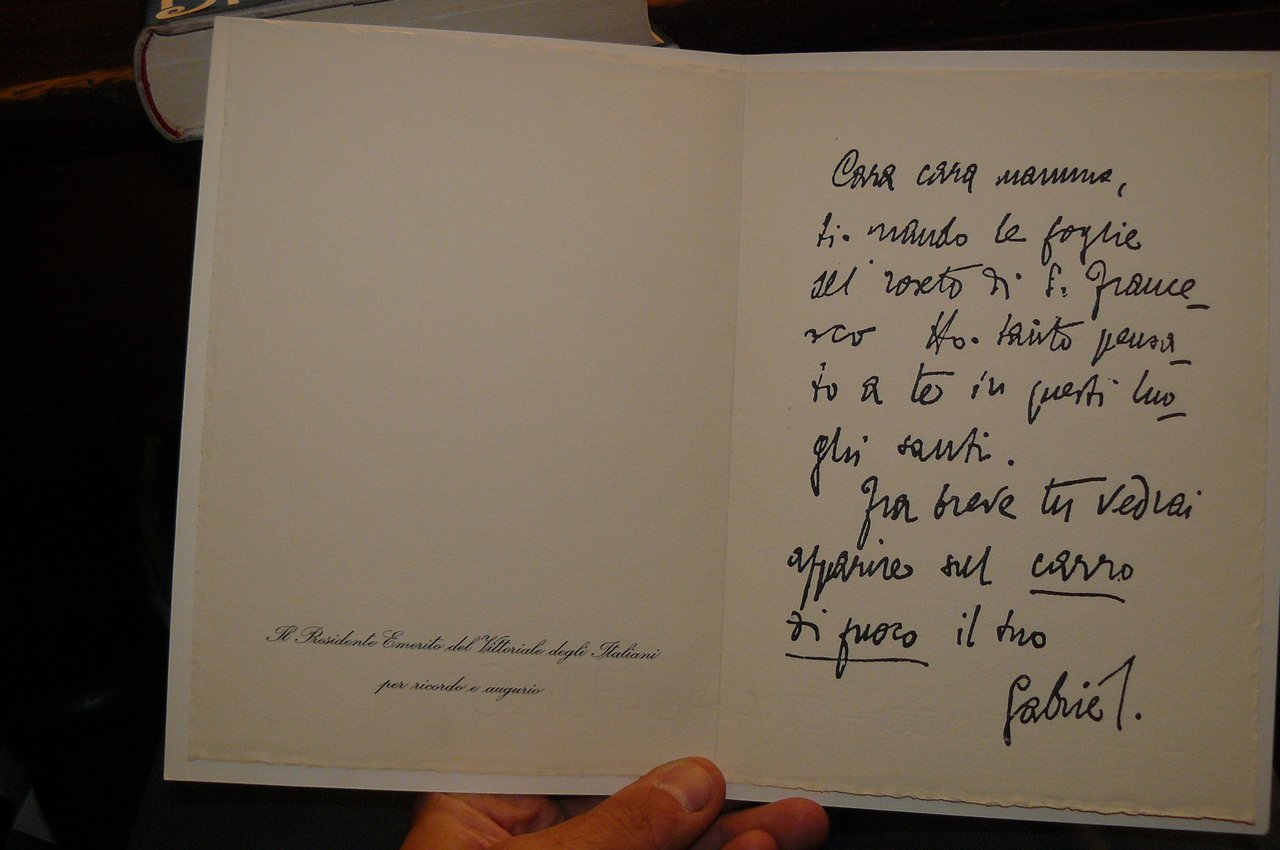 Il Presidente Emerito del Vittoriale degli Italiani
per ricordo e augurio
Cara cara mamma,
ti mando le foglie
del roseto di S. France_
sco Ho tanto pensa_
to a te in questi luo_
ghi santi.
Fra breve tu vedrai
apparire sul carro
di fuoco il tuo
Gabriel.